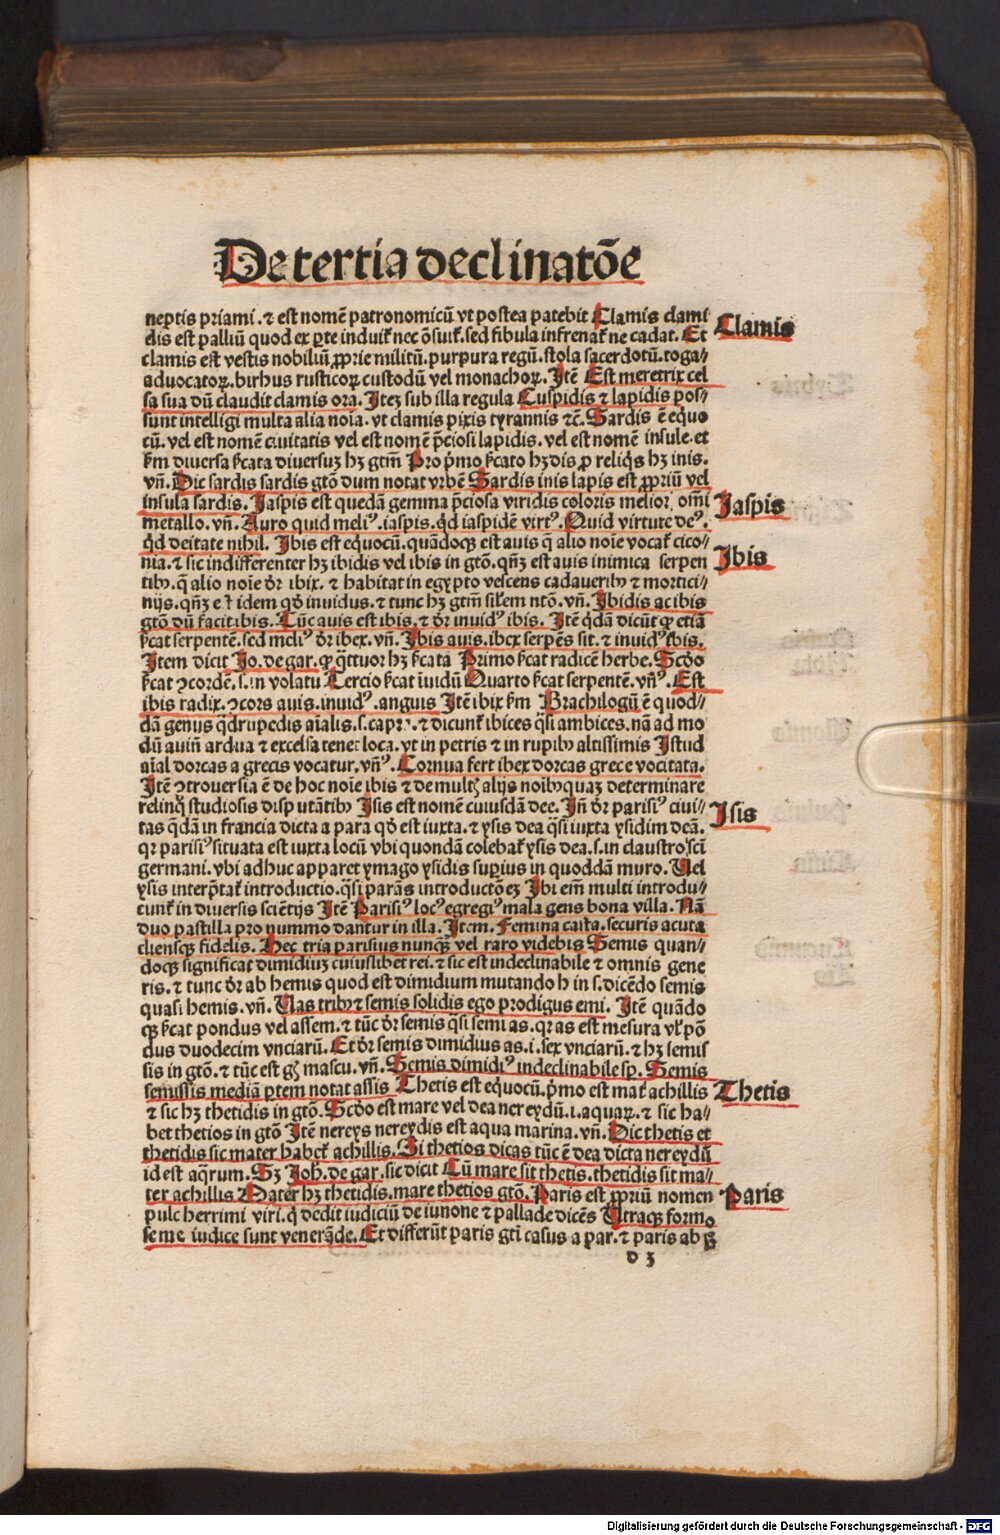 De tertia declinatōe
neptis priami. ⁊ est nomē patronomicū vt postea patebit Clamis clami
Clamis
dis est palliū quod ex ꝑte induit᷑ nec ōsuit᷑. sed fibula infrenat᷑ ne cadat. Et
clamis est vestis nobiliū ꝓprie militū. purpura regū. stola sacerdotū. toga⸗
aduocatoꝝ. birhus rusticoꝝ custodū vel monachoꝝ. Itē Est meretrix cel
sa sua dū claudit clamis ora. Iteꝫ sub illa regula Cuspidis ⁊ lapidis pos⸗
sunt intelligi multa alia noīa. vt clamis pixis tyrannis ⁊c̄. Sardis ē equo
cū. vel est nomē ciuitatis vel est nomē p̄ciosi lapidis. vel est nomē insule. et
ẜm diuersa ẜcata diuersuꝫ hꝫ gtm̄ Pro p̄mo ẜcato hꝫ dis ꝓ reliq̄s hꝫ inis.
vn̄. Dic sardis sardis gtō dum notat vrbē Sardis inis lapis est ꝓpriū vel
insula sardis. Jaspis est quedā gemma p̄ciosa viridis coloris melior om̄i
Jaspis
metallo. vn̄. Auro quid meliꝰ. iaspis. qd̄ iaspidē virtꝰ. Quid virtute deꝰ.
qd̄ deitate nihil. Ibis est eq̄uocū. quādoqꝫ est auis q̄ alio noīe vocat᷑ cico⸗
Ibis
nia. ⁊ sic indifferenter hꝫ ibidis vel ibis in gtō. qn̄ꝫ est auis inimica serpen
tibꝫ. q̄ alio noīe dr̄ ibix. ⁊ habitat in egypto vescens cadaueribꝫ ⁊ mortici⸗
nijs. qn̄ꝫ est idem qd̄ inuidus. ⁊ tunc hꝫ gtm̄ sil᷑em ntō. vn̄. Ibidis ac ibis
gtō dū facit ibis. Tūc auis est ibis. ⁊ dr̄ inuidꝰ ibis. Itē q̄dā dicūt ꝙ etiā
ẜcat serpentē. sed meliꝰ dr̄ ibex. vn̄. Ibis auis. ibex serpēs sit. ⁊ inuidꝰ ibis.
Item dicit Jo. de gar. ꝙ q̄ttuor hꝫ ẜcata Primo ẜcat radicē herbe. Scd̄o
ẜcat ꝯcordē. s. in volatu Tercio ẜcat īuidū Quarto ẜcat serpentē. vn̄ꝰ. Est
ibis radix. ꝯcors auis. inuidꝰ. anguis Itē ibix ẜm Brachilogū ē quod⸗
dā genus q̄drupedis aīalis. s. capre. ⁊ dicunt᷑ ibices q̄si ambices. nā ad mo
dū auiū ardua ⁊ excelsa tenet loca. vt in petris ⁊ in rupibꝫ altissimis Istud
aīal dorcas a grecis vocatur. vn̄ꝰ. Cornua fert ibex dorcas grece vocitata.
Itē ꝯtrouersia ē de hoc noīe ibis ⁊ de multꝭ alijs noībꝫ quaꝫ determinare
relinq̄ studiosis disputātibꝫ Isis est nomē cuiusdā dee. Jn̄ dr̄ parisiꝰ ciui⸗
Isis
tas q̄dā in francia dicta a para qd̄ est iuxta. ⁊ ysis dea q̄si iuxta ysidim deā.
qr parisiꝰ situata est iuxta locū vbi quondā colebat᷑ ysis dea. s. in claustro sci
germani. vbi adhuc apparet ymago ysidis supius in quoddā muro. Uel
ysis interp̄tat᷑ introductio. q̄si parās introductōeꝫ Ibi em̄ multi introdu⸗
cunt᷑ in diuersis sciētijs Itē Parisiꝰ locꝰ egregiꝰ mala gens bona villa. Nā
duo pastilla pro nummo dantur in illa. Item. Femina casta. securis acuta
cliensqꝫ fidelis. Hec tria parisius nunqꝫ vel raro videbis Semis quan⸗
doqꝫ significat dimidiuꝫ cuiuslibet rei. ⁊ sic est indeclinabile ⁊ omnis gene
ris. ⁊ tunc dr̄ ab hemis quod est dimidium mutando h in s. dicēdo semis
quasi hemis. vn̄. Uas tribꝫ ⁊ semis solidis ego prodigus emi. Itē quādo
qꝫ ẜcat pondus vel assem. ⁊ tūc dr̄ semis q̄si semi as. qr as est mesura vl᷑ pō
dus duodecim vnciarū. Et dr̄ semis dimidius as. i. sex vnciarū. ⁊ hꝫ semis
sis in gtō. ⁊ tūc est gn̄ mascu. vn̄. Semis dimidiꝰ indeclinabile sp. Semis
semissis mediā ꝑtem notat assis Thetis est eq̄uocū. p̄mo est mat᷑ achillis
Thetis
⁊ sic hꝫ thetidis in gtō. Scd̄o est mare vel dea nereydū. i. aquaꝝ. ⁊ sic ha⸗
bet thetios in gtō Itē nereys nereydis est aqua marina. vn̄. Dic thetis et
thetidis sic mater habet᷑ achillis. Si thetios dicas tūc ē dea dicta nereydū
id est aq̄rum. Sꝫ Joh. de gar. sic dicit Cū mare sit thetis. thetidis sit ma⸗
ter achillis Mater hꝫ thetidis. mare thetios gtō. Paris est ꝓpriū nomen
Paris
pulcherrimi viri. q̄ dedit iudiciū de iunone ⁊ pallade dicēs Utraqꝫ formo
se me iudice sunt venerāde. Et differūt paris gtī casus a par. ⁊ paris ab
d 3
Digitalisierung gefördert durch die Deutsche Forschungsgemeinschaft - DFG